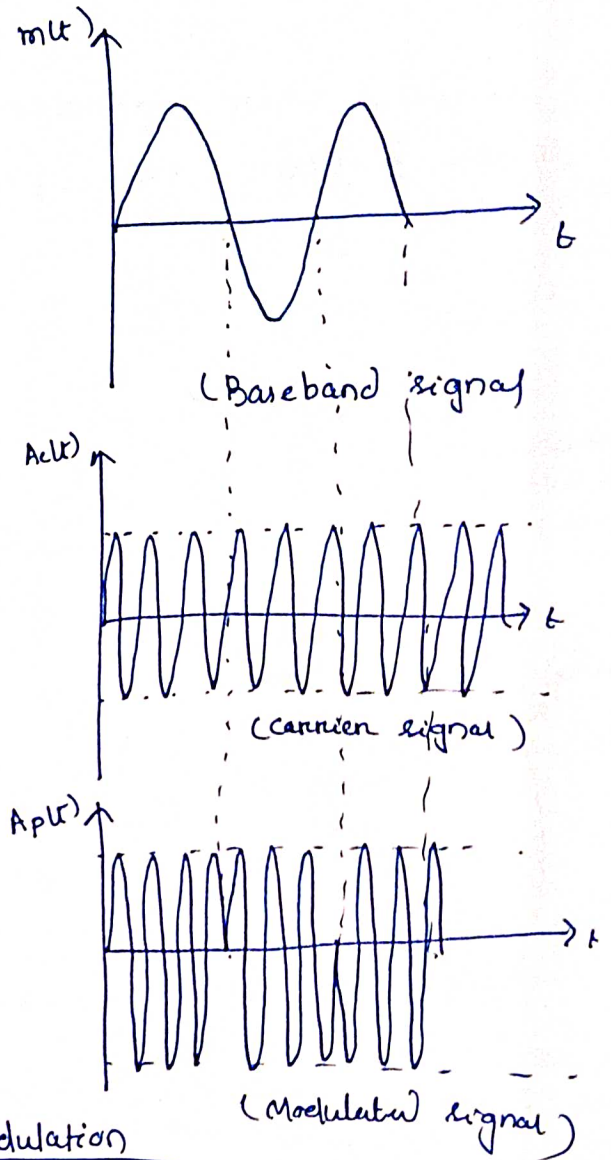 m(t)
t
(Baseband signal
Ac(t)
t
(carrier signal)
Ap(t)
t
(Modulated signal)
dulation